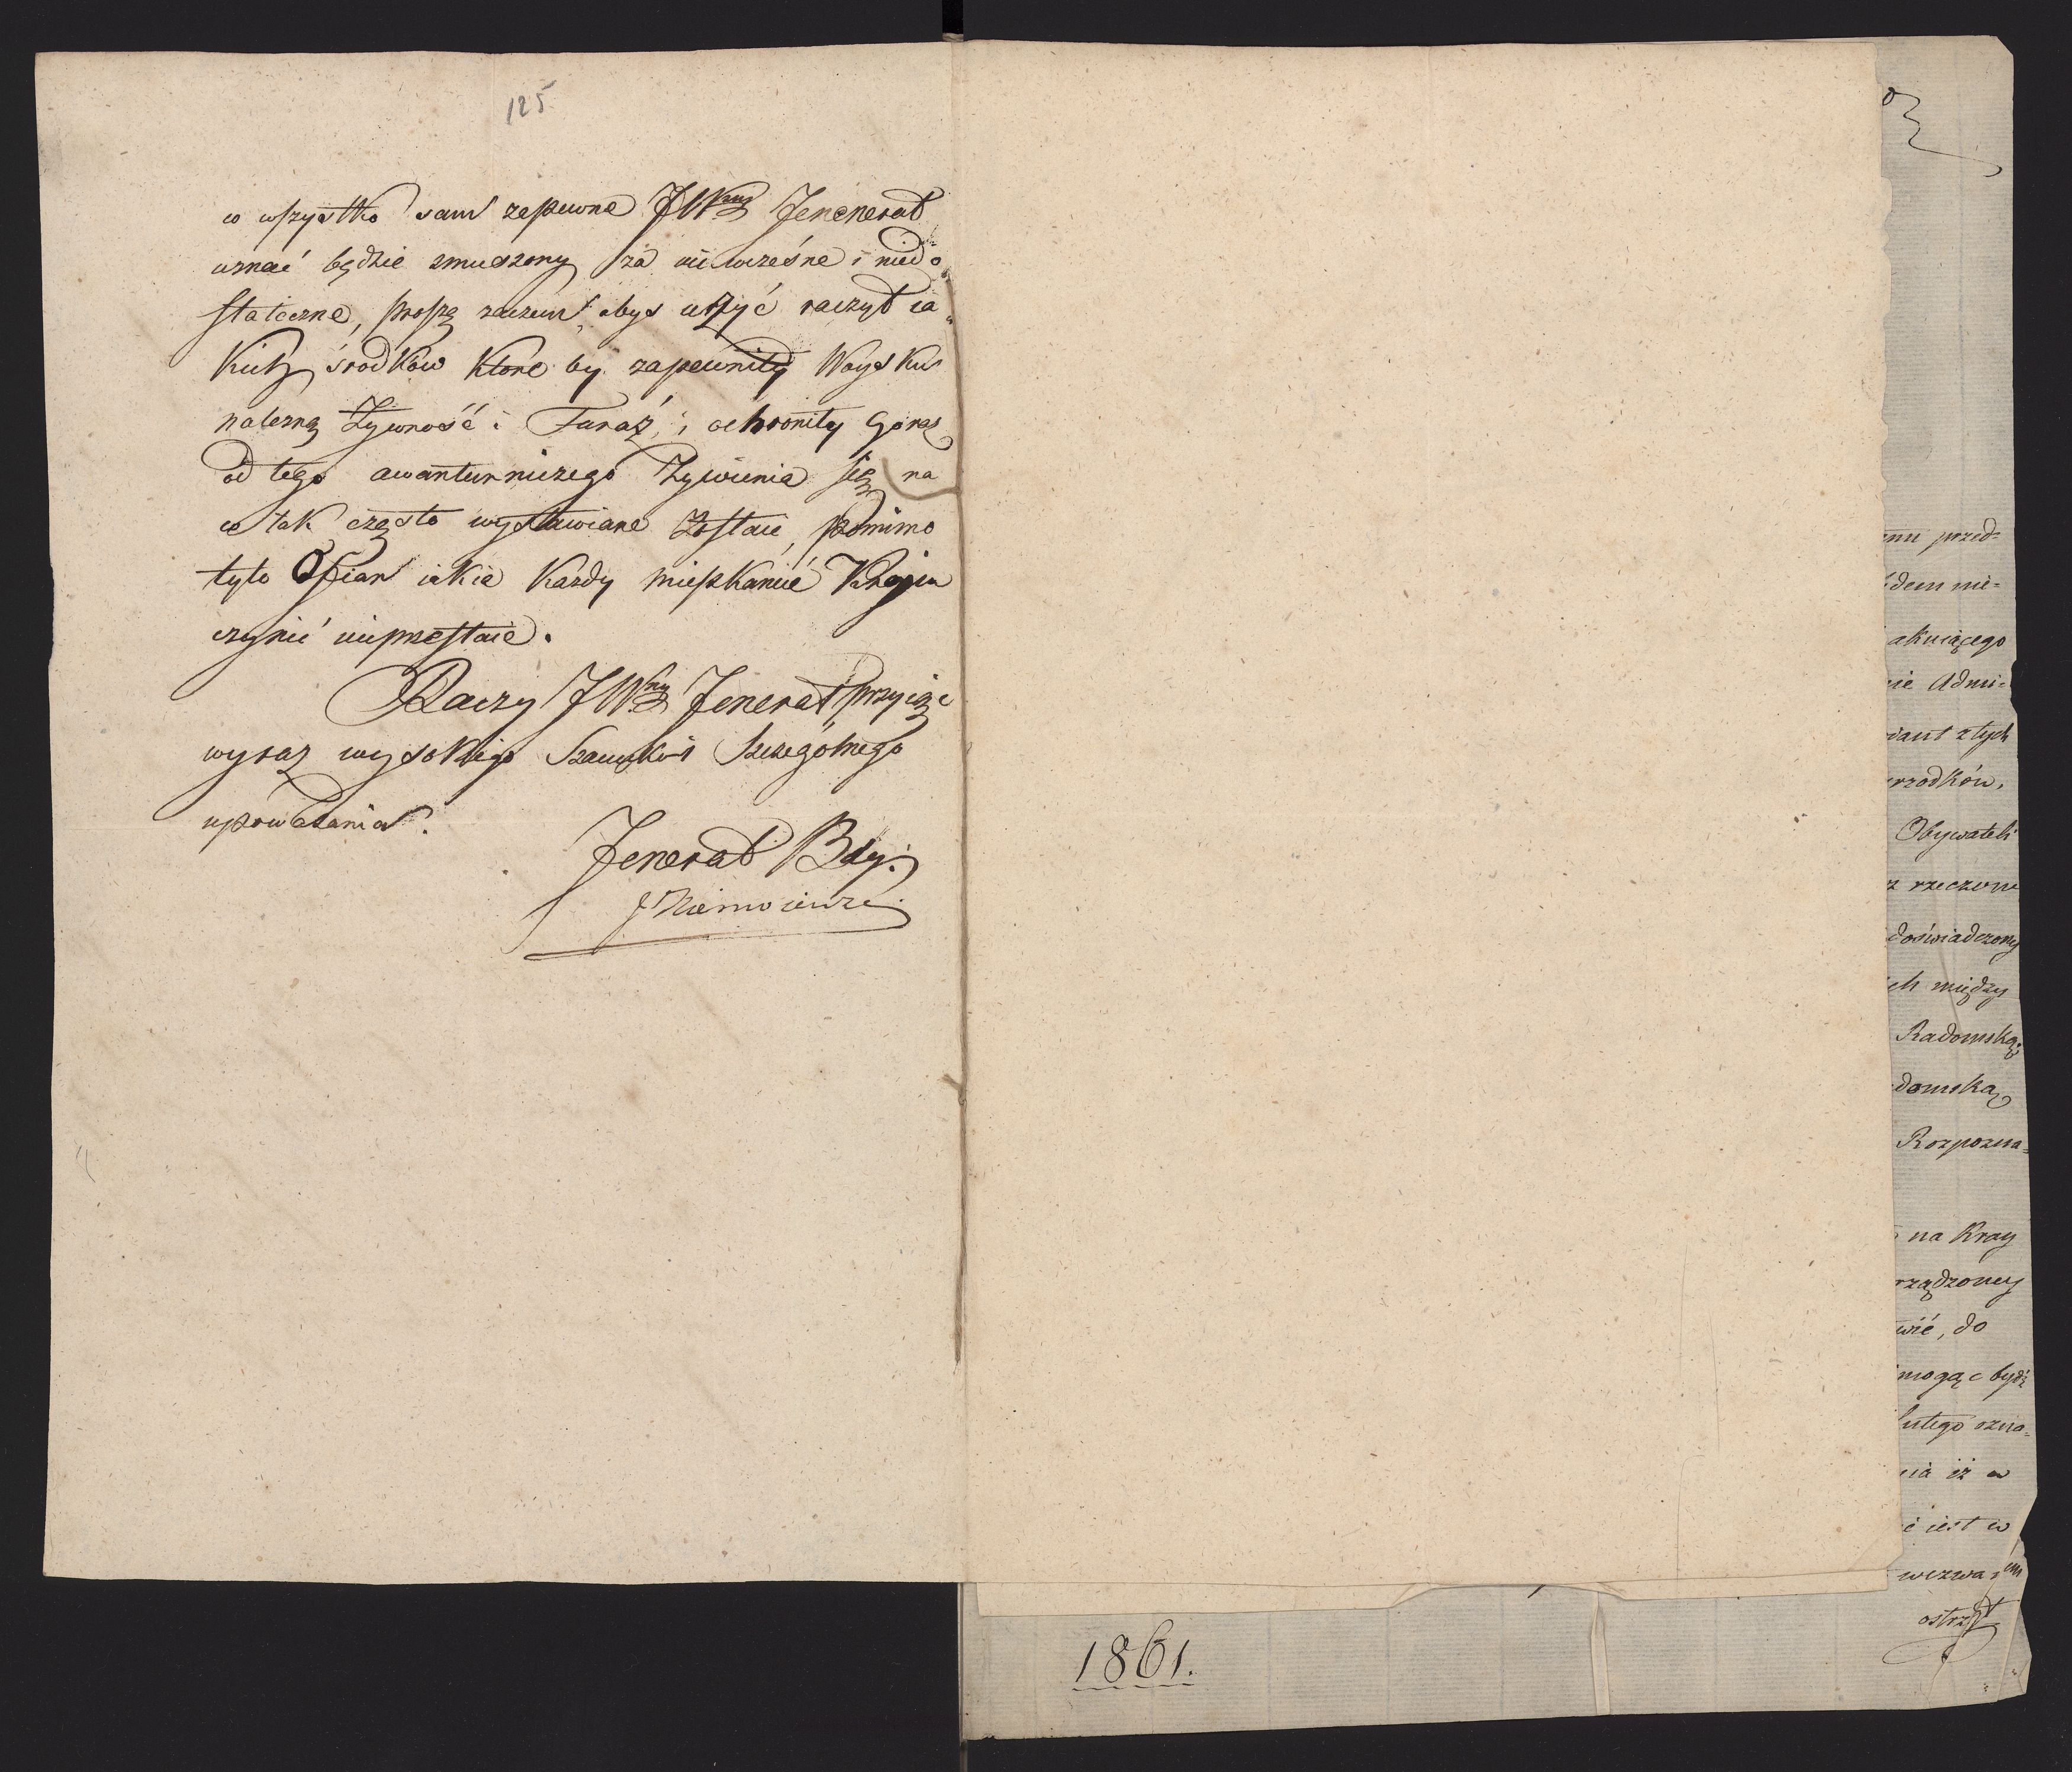 125
co wszystko sam zapewne JWny Jenenerał
uznać będzie zmuszony za niewczesne i niedo
stateczne, proszę zaczem abyś użyć raczył ia
kich środków które by zapewniły Woysku
należną Żywność i Furaż, i ochroniły Goraz
od tego awanturniczego Żywienia się na
co tak często wystawiane zostaie, pomimo
tylu Ofiar iakie każdy mieszkaniec Kraju
czynić nieprzestaie.
Raczy JWny Jenerał przyiąć
wyraz wysokiego Szacunku i Szczegolnego
upoważania.
Jenerał Bdy:
J Niemoiewski
mu przed=
dem nie=
akuiącego
ie Admi=
dant z tych
rzodków,
Obywateli
z rzeczone
doświadczony
ch między
Radomską;
domską
Rozpozna=
na Kray
rządzoney
wić, do
mogąc bydź
lutego ozna=
nia iż w
ć iest w
wezwa
ostrz
1861.